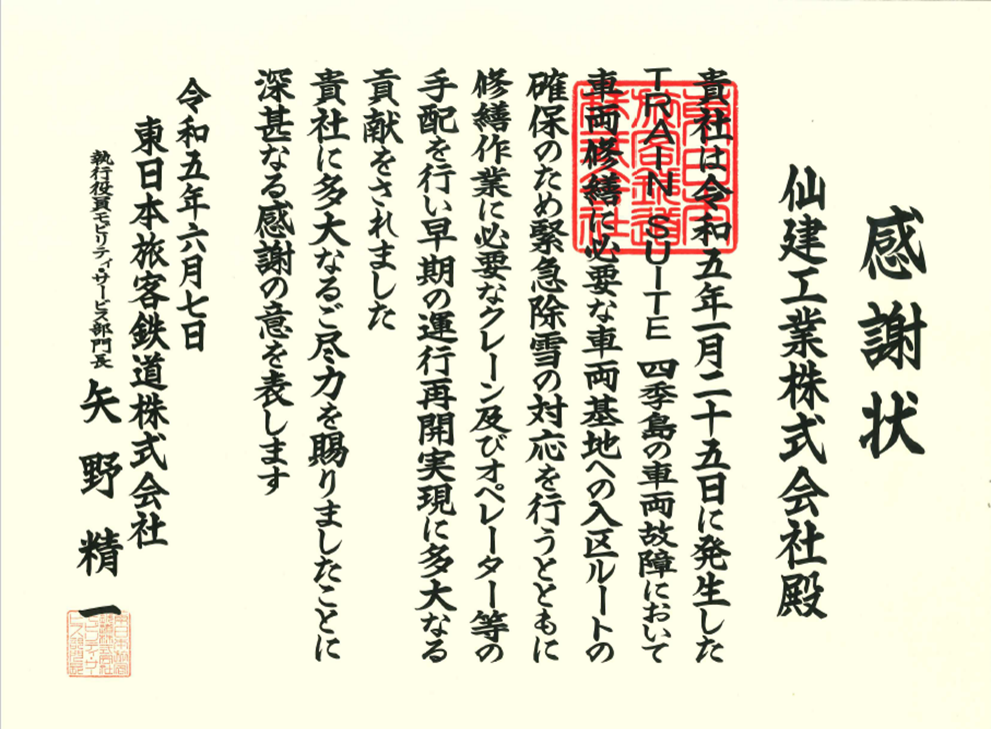 感謝状
仙建工業株式会社殿
貴社は令和五年一月二十五日に発生した
TRAIN SUITE 四季島の車両故障において
車両修繕に必要な車両基地への入区ルートの
確保のため緊急除雪の対応を行うとともに
修繕作業に必要なクレーン及びオペレーター等の
手配を行い早期の運行再開実現に多大なる
貢献をされました
貴社に多大なるご尽力を賜りましたことに
深甚なる感謝の意を表します
令和五年六月七日
東日本旅客鉄道株式会社
執行役員モビリティ・サービス部門長 矢野精一